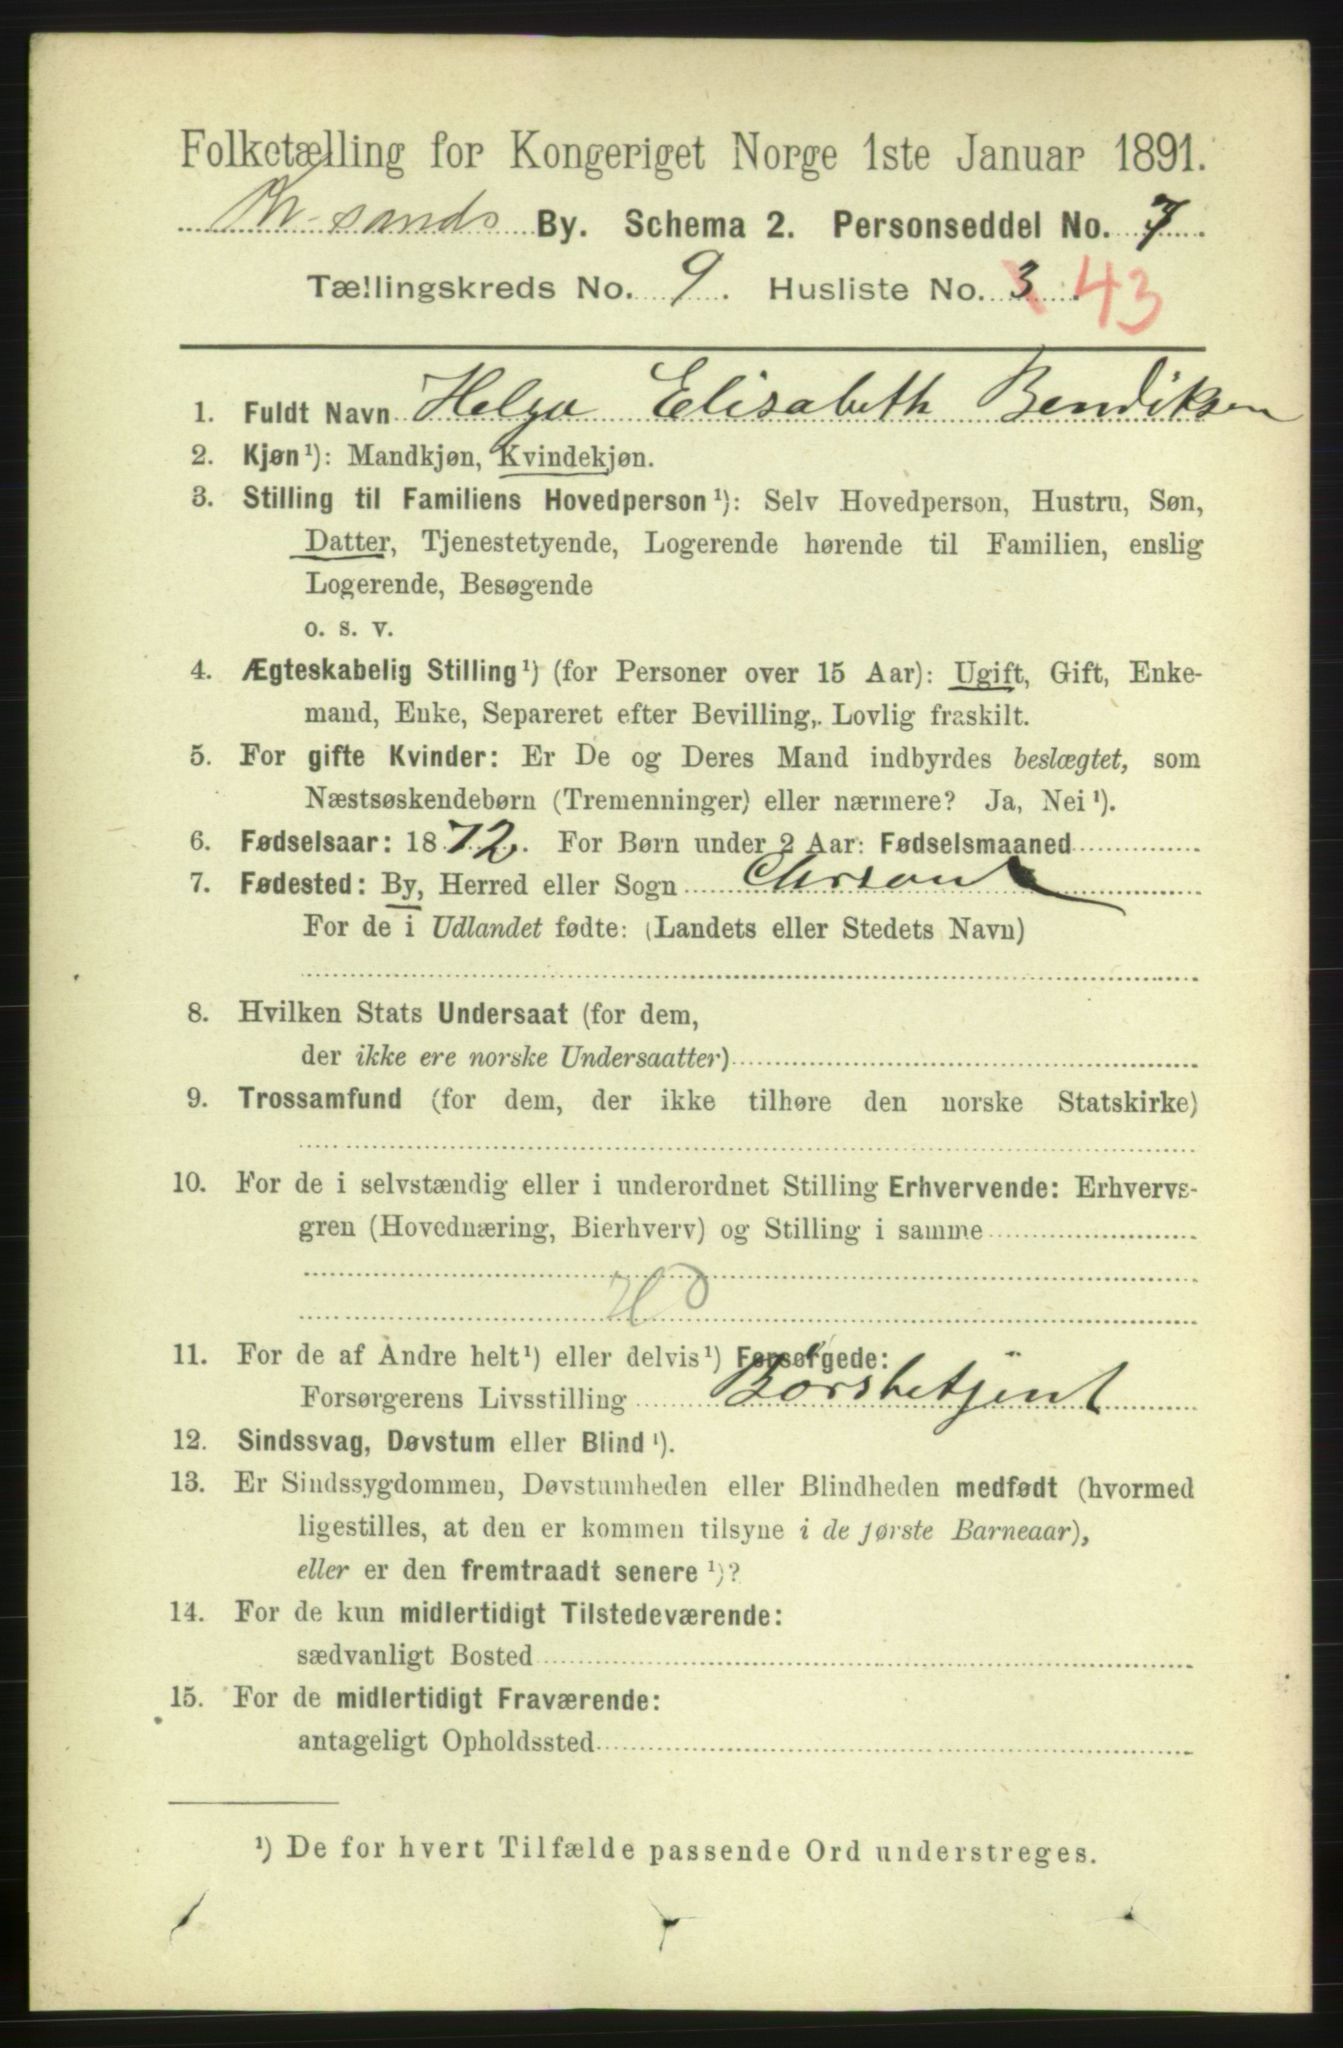 Folketælling for Kongeriget Norge 1ste Januar 1891.
Kr-sands By. Schema 2. Personseddel No. 7.
Tællingskreds No. 9. Husliste No. 3. 43
1. Fuldt Navn Helga Elisabeth Bendiksen
2. Kjøn¹): Mandkjøn, Kvindekjøn.
3. Stilling til Familiens Hovedperson¹): Selv Hovedperson, Hustru, Søn,
Datter, Tjenestetyende, Logerende hørende til Familien, enslig
Logerende, Besøgende
o. s. v.
4. Ægteskabelig Stilling¹) (for Personer over 15 Aar): Ugift, Gift, Enke-
mand, Enke, Separeret efter Bevilling, Lovlig fraskilt.
5. For gifte Kvinder: Er De og Deres Mand indbyrdes beslægtet, som
Næstsøskendebørn (Tremenninger) eller nærmere? Ja, Nei¹).
6. Fødselsaar: 1872. For Børn under 2 Aar: Fødselsmaaned
7. Fødested: By, Herred eller Sogn Chrsand
For de i Udlandet fødte: (Landets eller Stedets Navn)
8. Hvilken Stats Undersaat (for dem,
der ikke ere norske Undersaatter)
9. Trossamfund (for dem, der ikke tilhøre den norske Statskirke)
10. For de i selvstændig eller i underordnet Stilling Erhvervende: Erhvervs-
gren (Hovednæring, Bierhverv) og Stilling i samme
11. For de af Andre helt¹) eller delvis¹) Forsørgede:
Forsørgerens Livsstilling Börsbetjent
12. Sindssvag, Døvstum eller Blind¹).
13. Er Sindssygdommen, Døvstumheden eller Blindheden medfødt (hvormed
ligestilles, at den er kommen tilsyne i de første Barneaar),
eller er den fremtraadt senere¹)?
14. For de kun midlertidigt Tilstedeværende:
sædvanligt Bosted
15. For de midlertidigt Fraværende:
antageligt Opholdssted
¹) De for hvert Tilfælde passende Ord understreges.